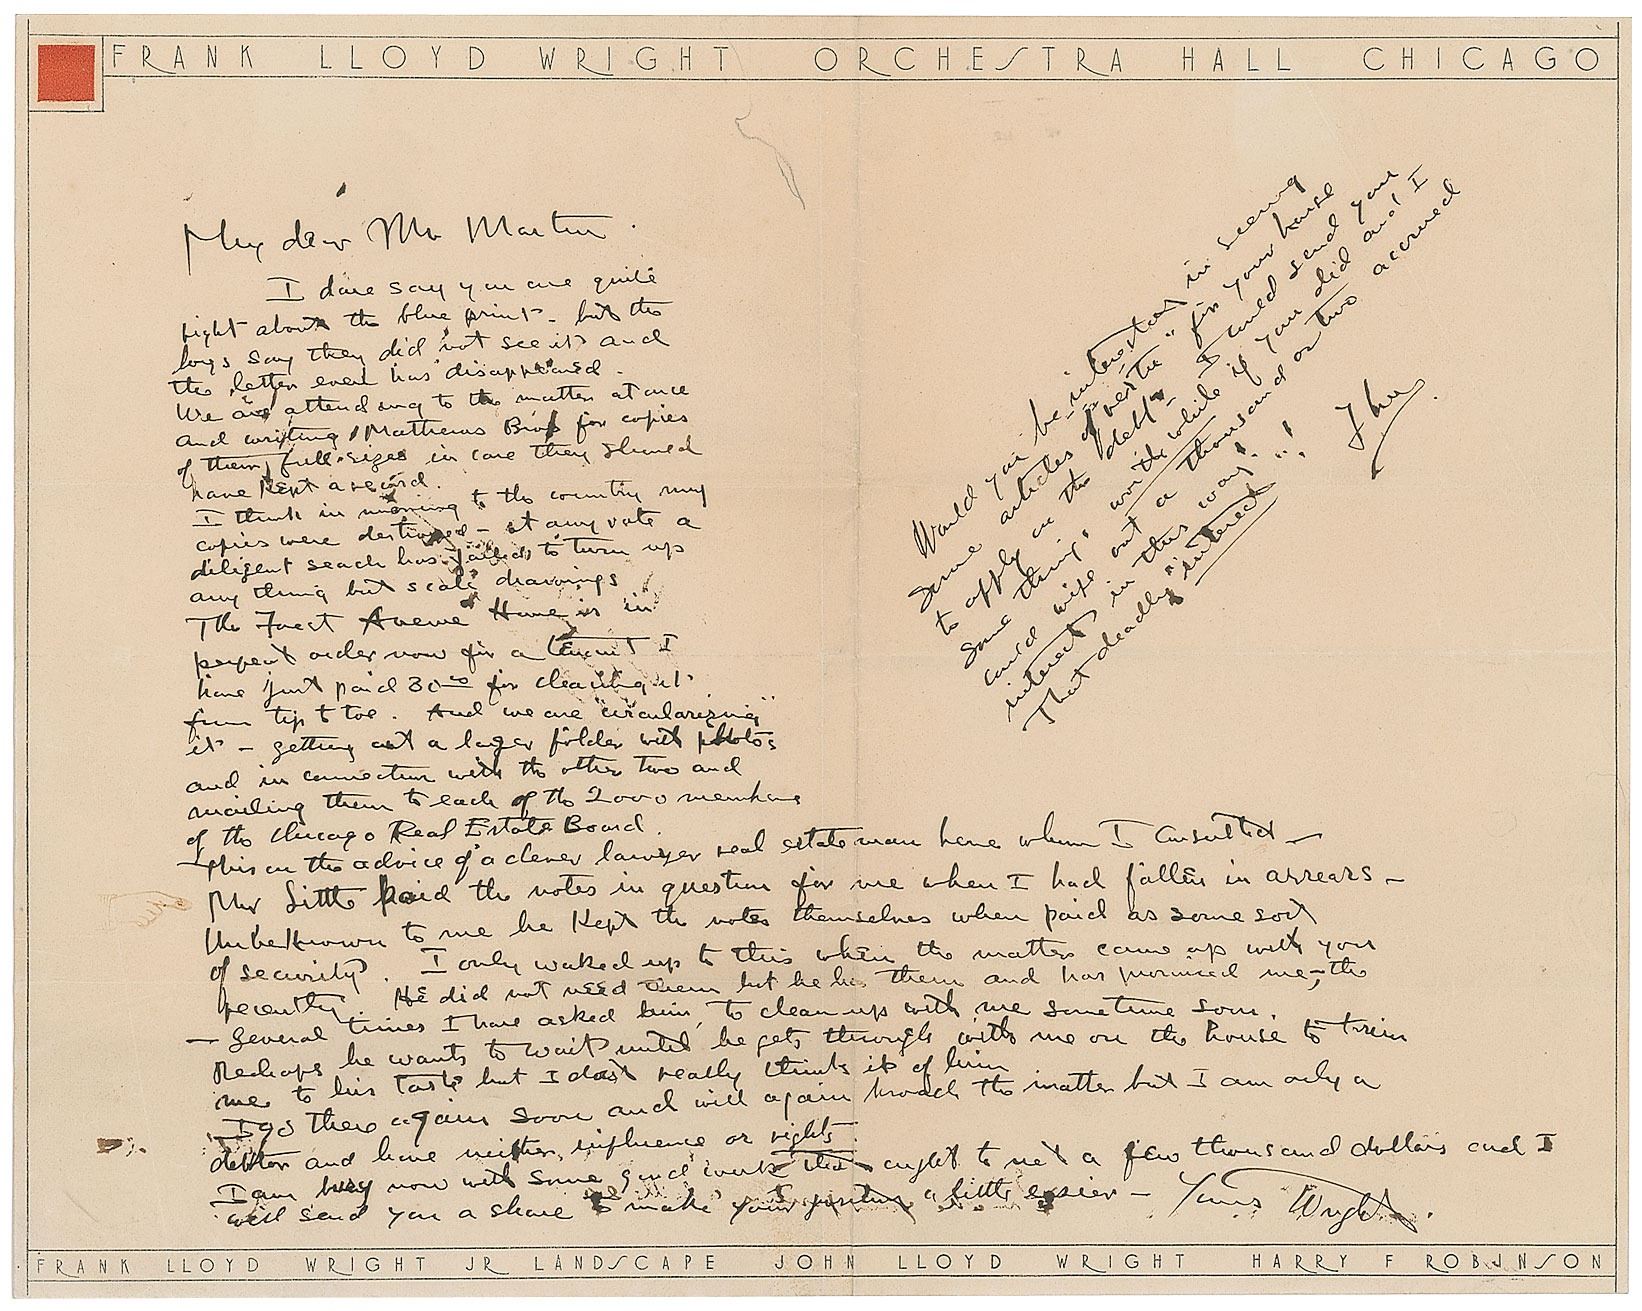 FRANK LLOYD WRIGHT ORCHESTRA HALL CHICAGO
My dear Mr Martin.
I dare say you are quite
right about the blue print - but the
boys say they did not see it and
the letter even has disappeared.
We are attending to the matter at once
and writing Matthews Bros for copies
of them, full-sizes in case they should
have kept a record.
I think in moving to the country my
copies were destroyed - at any rate a
diligent seach has failed to turn up
any thing but scale drawings
The Forest Avenue House is in
perfect order now for a tenant I
have just paid 30 00 for cleaning it
from tip to toe. And we are "circularizing"
it - getting out a larger folder with photos
and in connection with the other two and
mailing them to each of the 2000 members
of the Chicago Real Estate Board.
- This on the advice of a clever lawyer real estate man here whom I consulted -
Mr Little paid the notes in question for me when I had fallen in arrears -
Unbeknown to me he kept the notes themselves when paid as some sort
of security. I only waked up to this when the matter came up with you
recently. He did not need them but he has them and has promised me, - the
- several times I have asked him, to clean up with me sometime soon.
Perhaps he wants to wait until he gets through with me on the house to trim
me to his taste but I dont really think it of him
I go there again soon and will again broach the matter but I am only a
debtor and have neither influence or rights.
I am busy now with some good work that ought to net a few thousand dollars and I
will send you a share to make your a little easier - Yours Wright.
Would you be interested in seeing
some articles of "vertu" for your house
to apply on the debt - I could send you
some things worth while if you did and I
could wipe out a thousand or two accrued
interest in this way! ..!
That deadly "interest"
FLLW
FRANK LLOYD WRIGHT JR LANDSCAPE JOHN LLOYD WRIGHT HARRY F ROBINSON